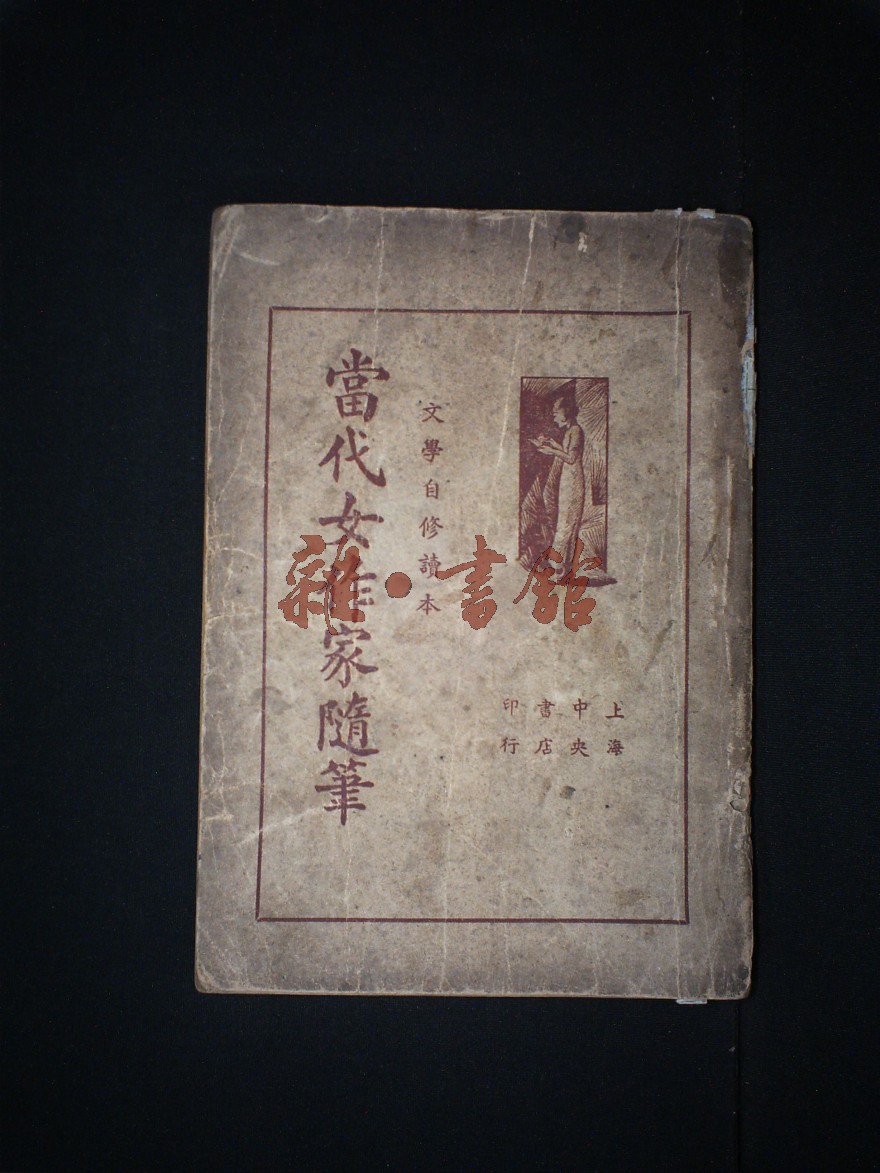 上海
中央
書店
印行
文學自修讀本
當代女作家隨筆
雜·書館